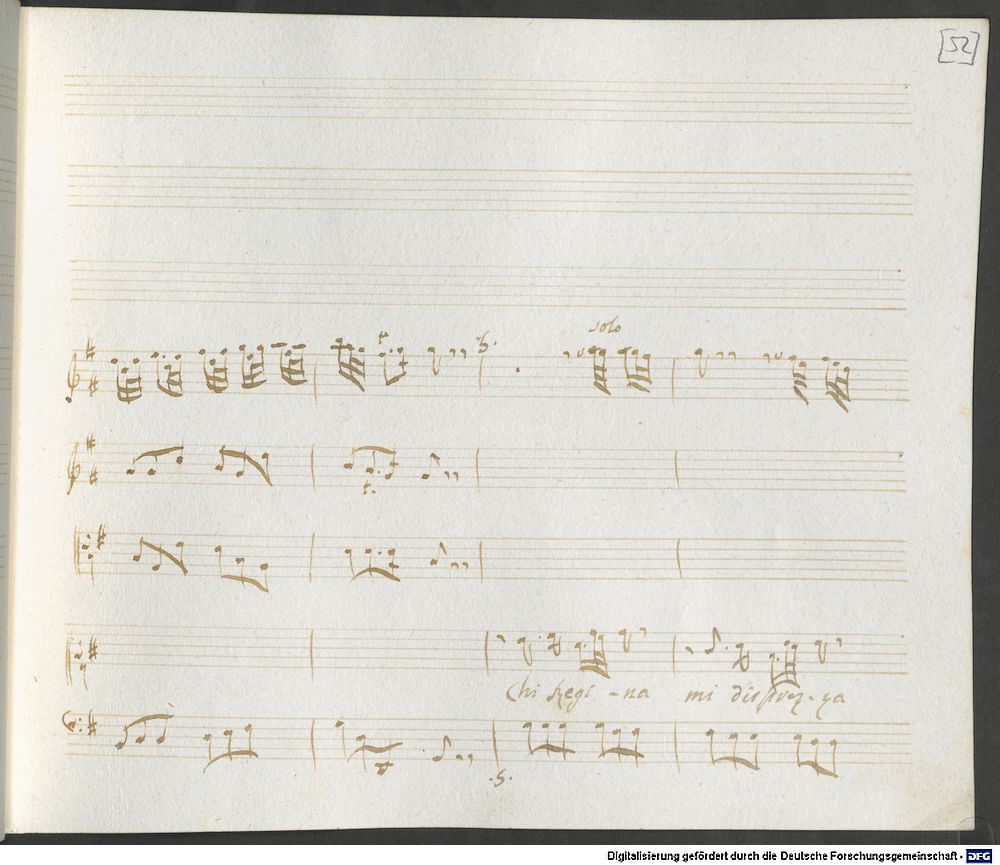 [52]
t
.S.
solo
t.
Chi Regi-na mi disprez-za
.S.
Digitalisierung gefördert durch die Deutsche Forschungsgemeinschaft - DFG